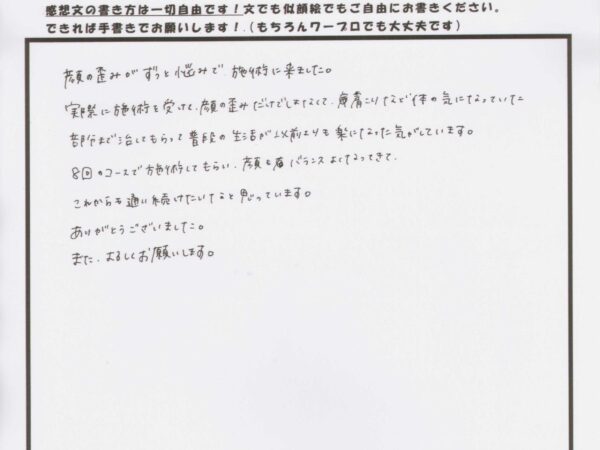 感想文の書き方は一切自由です！文でも似顔絵でもご自由にお書きください。
できれば手書きでお願いします！.（もちろんワープロでも大丈夫です）
顔の歪みがずっと悩みで、施術に来ました。
実際に施術を受けて、顔の歪みだけでしなくて、肩こりなど体の気になっていた
部分まで治してもらって普段の生活が以前よりも楽になった気がしています。
8回のコースで施術してもらい、顔も バランスよくなってきて、
これからも通い続けたいなと思っています。
ありがとうございました。
また、よろしくお願いします。